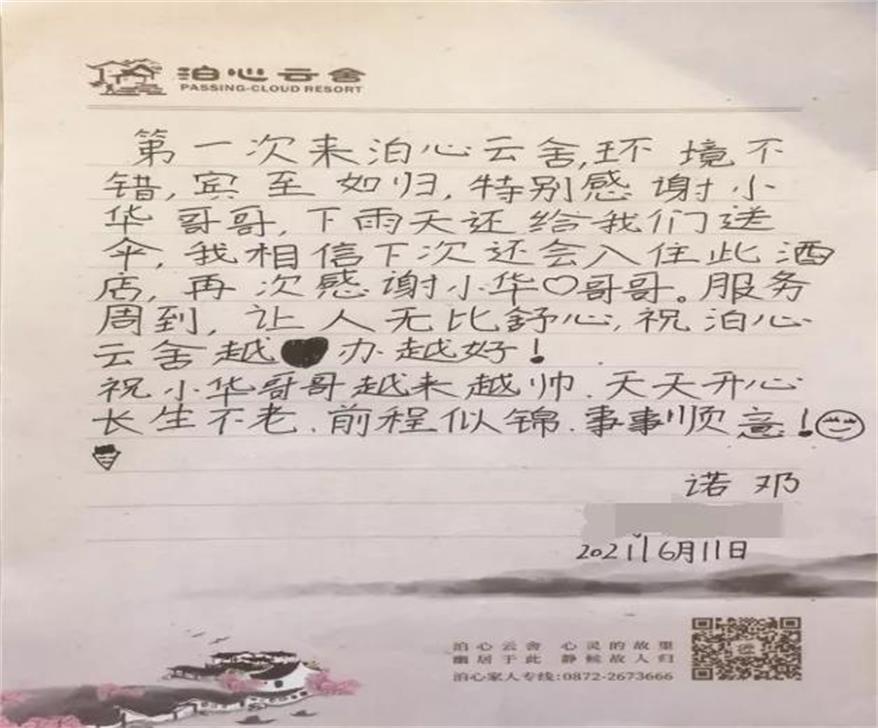 泊心云舍
PASSING-CLOUD RESORT
第一次来泊心云舍,环境不
错,宾至如归,特别感谢小
华哥哥,下雨天还给我们送
伞,我相信下次还会入住此酒
店,再次感谢小华♡哥哥。服务
周到,让人无比舒心,祝泊心
云舍越办越好!
祝小华哥哥越来越帅.天天开心
长生不老.前程似锦.事事顺意!
诺邓
2021 6月11日
泊心云舍 心灵的故里
幽居于此 静候故人归
泊心家人专线:0872-2673666